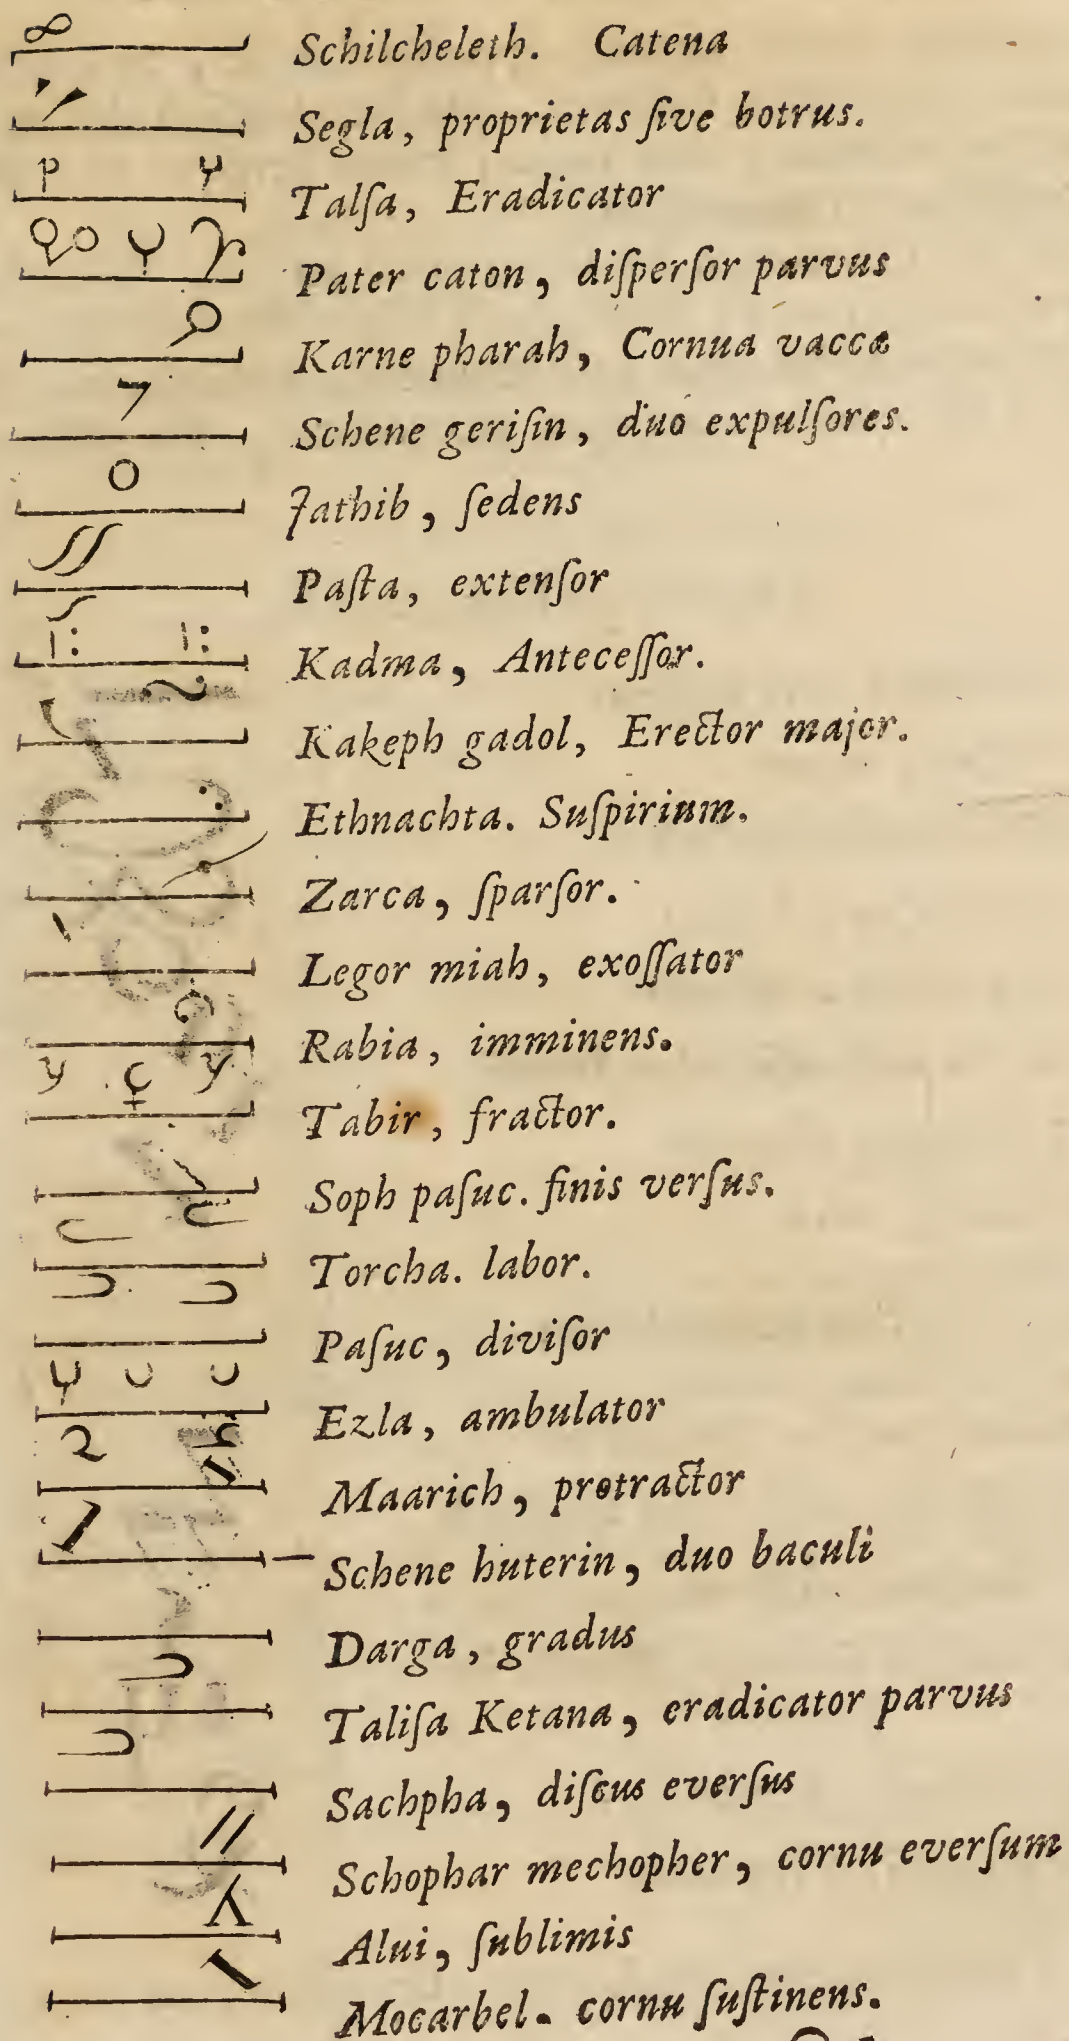 Schilcheleth. Catena
Segla, proprietas ſive botrus.
Talſa, Eradicator
Pater caton, diſperſor parvus
Karne pharah, Cornua vaccæ
Schene geriſin, duo expulſores.
Jathib, ſedens
Paſta, extenſor
Kadma, Anteceſſor.
Kakeph gadol, Erector major.
Ethnachta. Suſpirium.
Zarca, ſparſor.
Legor miah, exoſſator
Rabia, imminens.
Tabir, fractor.
Soph paſuc. finis verſus.
Torcha. labor.
Paſuc, diviſor
Ezla, ambulator
Maarich, protractor
Schene huterin, duo baculi
Darga, gradus
Taliſa Ketana, eradicator parvus
Sachpha, diſcus everſus
Schophar mechopher, cornu everſum
Alui, ſublimis
Mocarbel. cornu ſuſtinens.